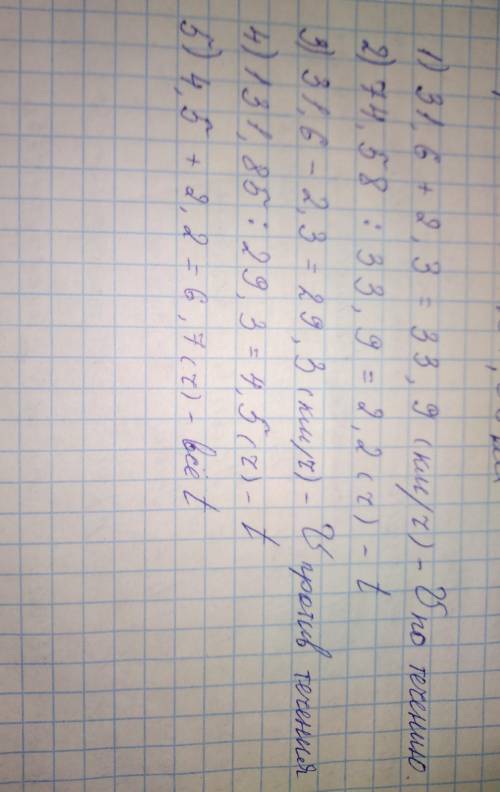 1) 31,6 + 2,3 = 33,9 (км/ч) - V по течению.
2) 74,58 : 33,9 = 2,2 (ч) - t
3) 31,6 - 2,3 = 29,3 (км/ч) - V против течения
4) 131,85 : 29,3 = 4,5 (ч) - t
5) 4,5 + 2,2 = 6,7 (ч) - всё t